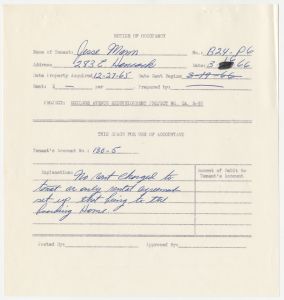 NOTICE OF OCCUPANCY
Name of Tenant: Jesse Mann No.: B24-P6
Address 283 E Hancock Date: 3 66
Date Property Acquired: 12-27-65 Date Rent Begins 3-17-66
Rent: $ - per Prepared by:
PROJECT: REDEVELOPMENT PROJECT NO.
THIS SPACE FOR USE OF ACCOUNTANT
Tenant's Account No.: 130-5
Amount of Debit to
Explanation: No Rent Charged to Tenant's Account
as only rental agreement
set up that being to the
Home.
Posted By: Approved By: